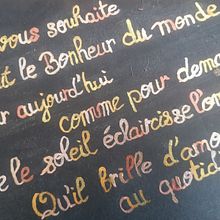 vous souhaite
le Bonheur du monde
aujourd'hui
comme pour
le soleil éclaircisse l'om
Qu'il brille d'amo
au quotid